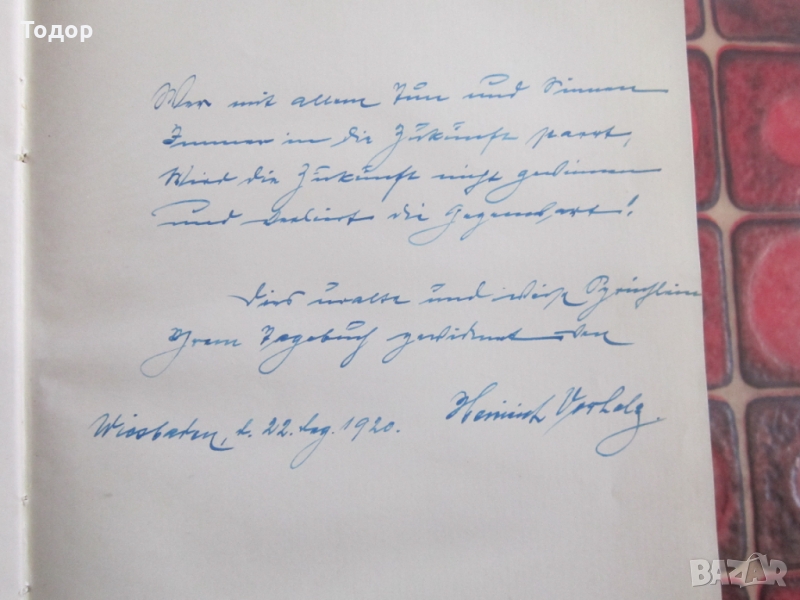 Todop
Wer mit allem Tun und Sinnen
Immer in die Zukunft paart,
Wird die Zukunft nicht gewinnen
und verliert die Gegenwart!
Dies uralte und weise Sprüchlein
Ihrem Tagebuch gewidmet von
Heinrich
Wiesbaden, d. 22. Dez. 1920.
BAZAR